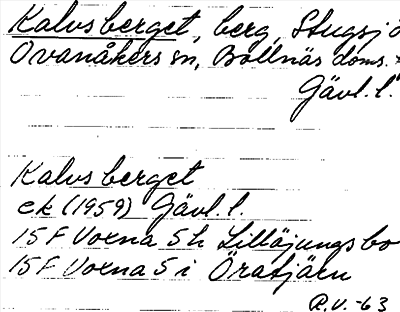 Kalvsberget, berg, Stugsjö
Ovanåkers sn, Bollnäs doms.
Gävl. l.
Kalvsberget
ek (1959) Gävl. l.
15 F Voxna 5 h Lillöjungsbo
15 F Voxna 5 i Öratjärn
R.V. -63